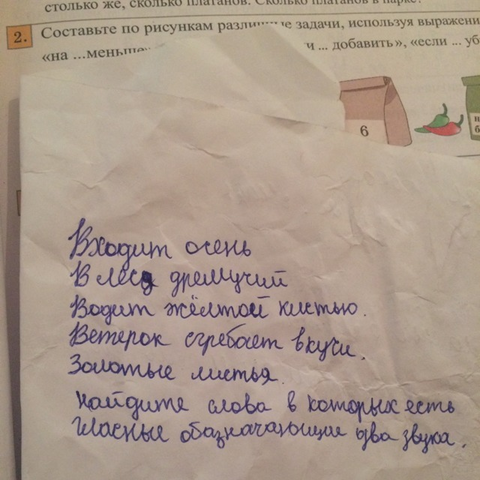 столько же, сколько платанов. Сколько платанов в парке?
2. Составьте по рисункам различные задачи, используя
«на ...меньше», и ... добавить», «если ... уб
6
Входит осень
В лес дремучий
Водит жёлтой кистью.
Ветерок сгребает в кучи.
Золотые листья.
Найдите слова в которых есть
гласные обазначающие два звука.